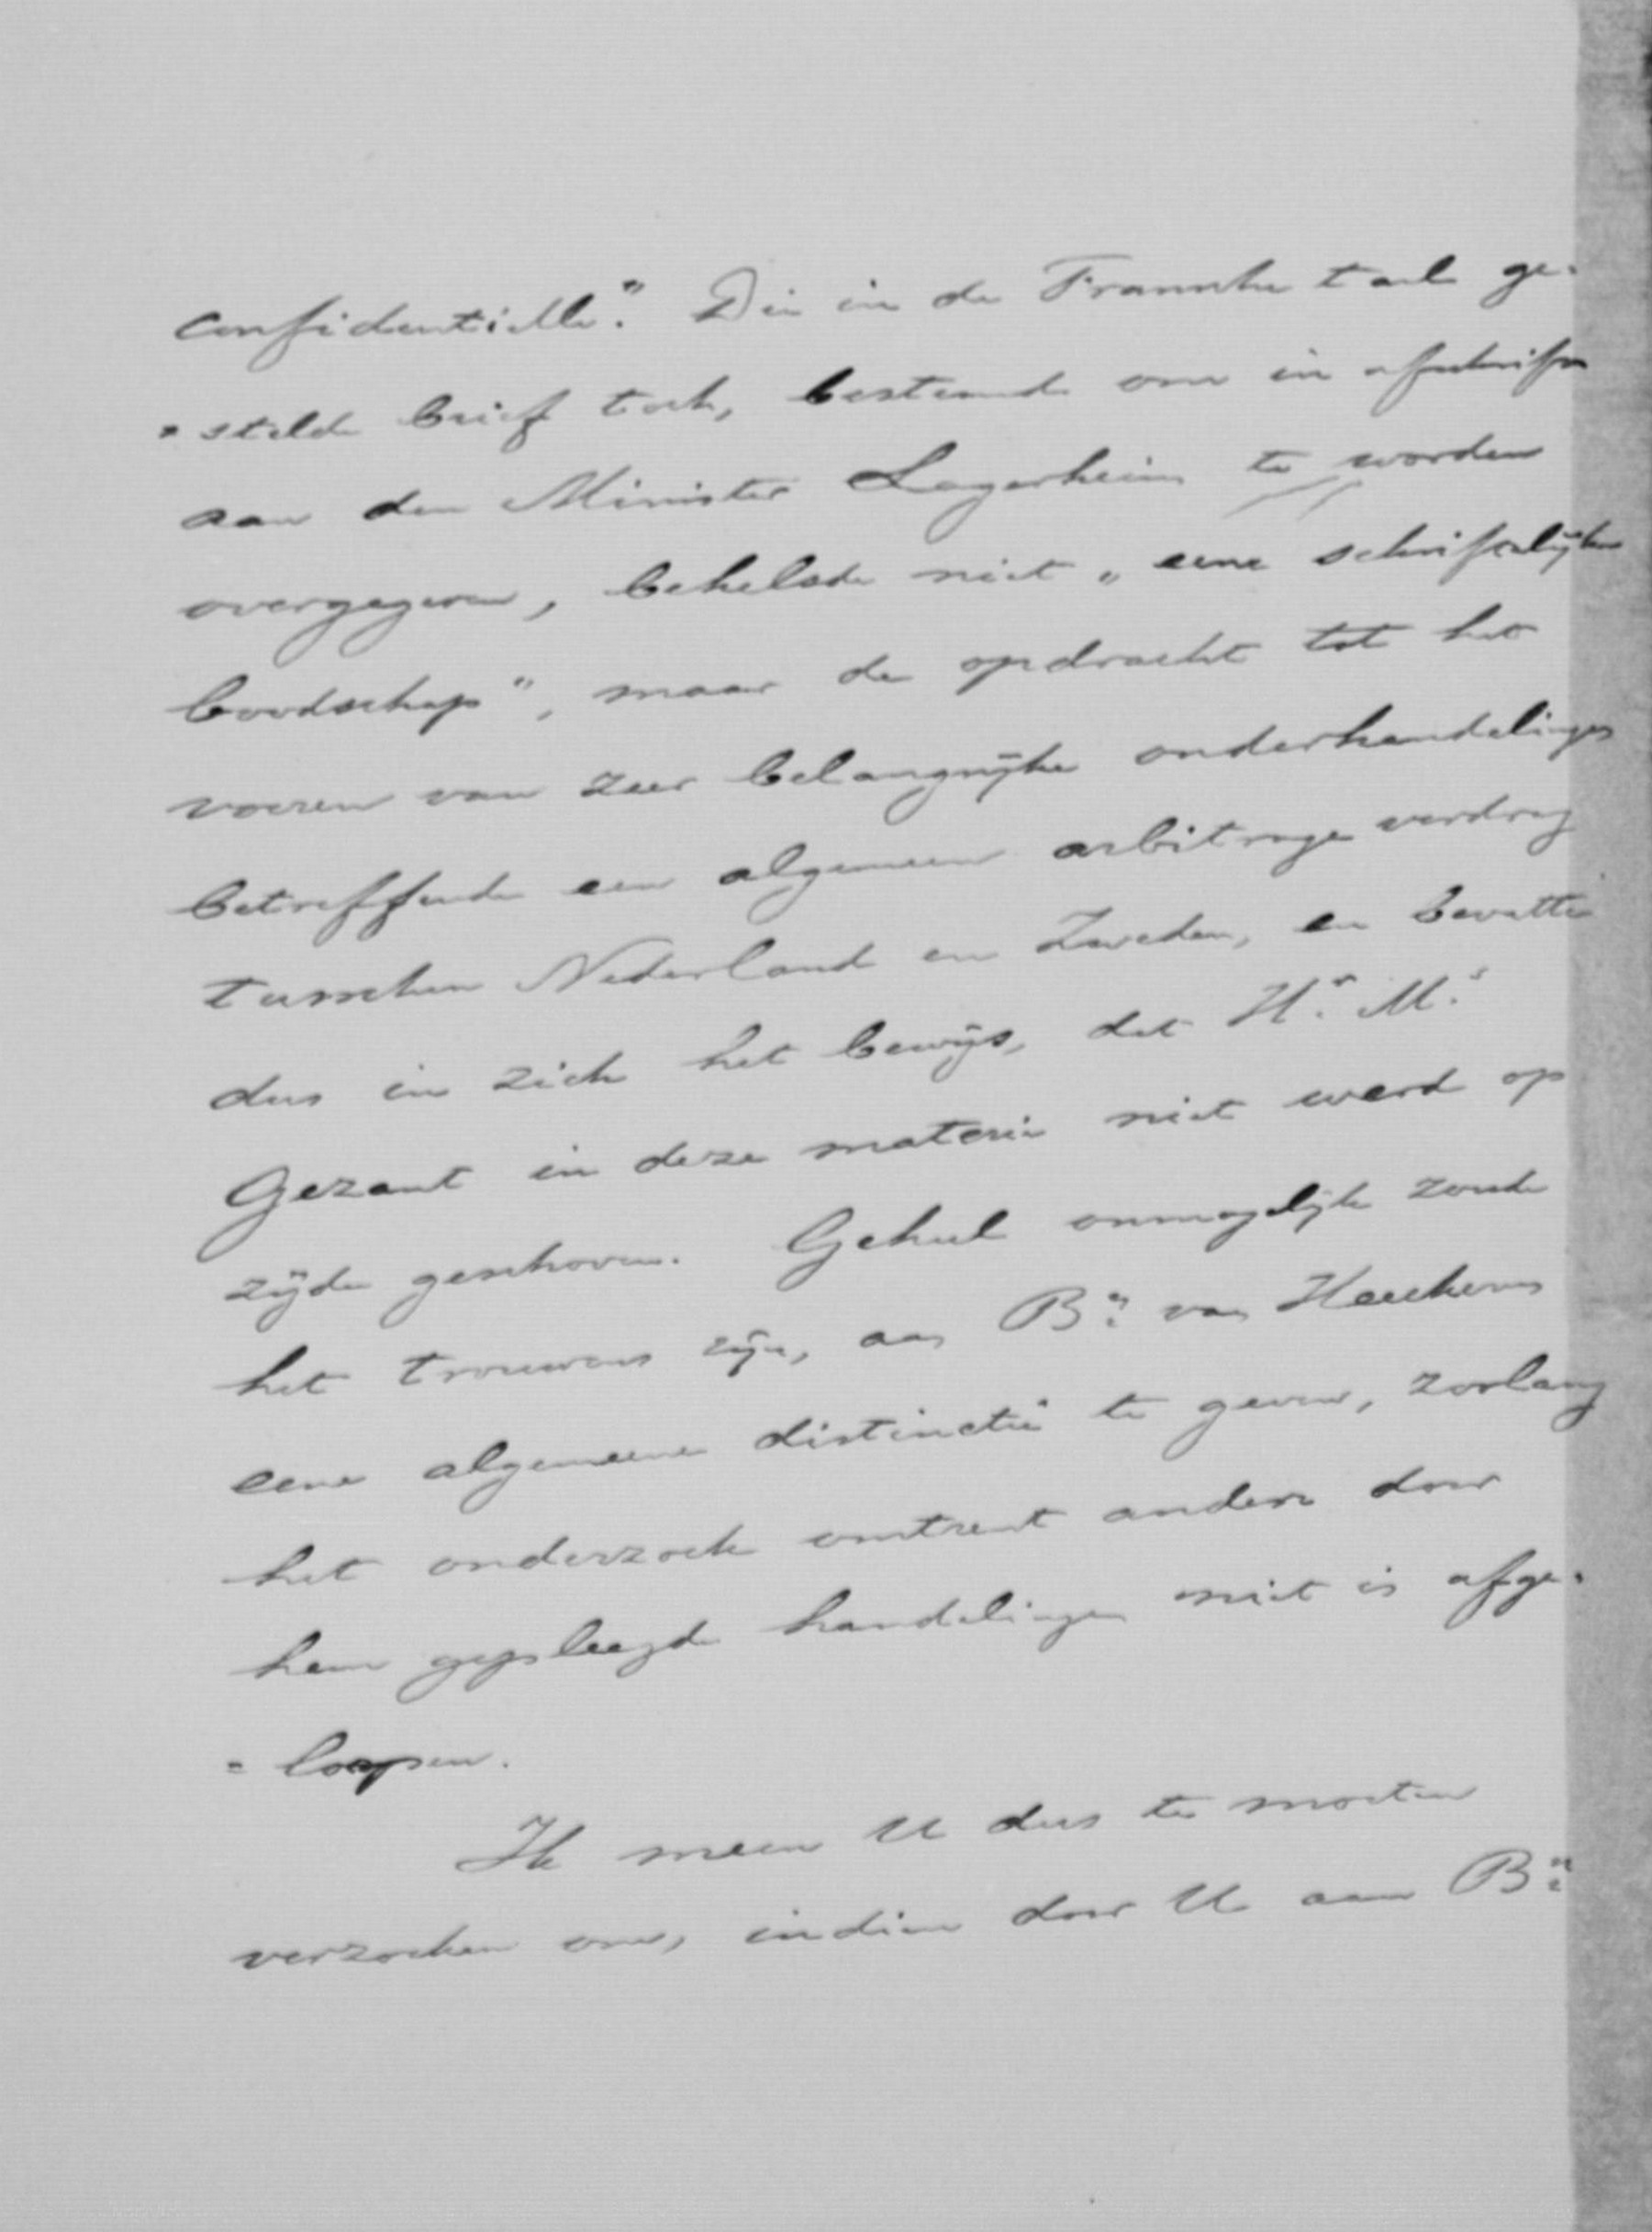 confidentielle." Die in de Fransche taal ge-
=stelde brief toch, bestemd om in afschrift
aan den Minister Lagerheim te worden
overgegeven, behelsde niet „eene schriftelijke
boodschap", maar de opdracht tot het
voeren van zeer belangrijke onderhandelingen
betreffende een algemeen arbitrage verdrag
tusschen Nederland en Zweden, en bevatte
dus in zich het bewijs, dat Hr. Ms.
Gezant in deze materie niet werd op
zijde geschoven. Geheel onmogelijk zoude
het trouwens zijn, aan Bn. van Heeckeren
eene algemeene distinctie te geven, zoolang
het onderzoek omtrent andere door
hem gepleegde handelingen niet is afge-
=loopen.
Ik meen U dus te moeten
verzoeken om, indien door U aan Bn.